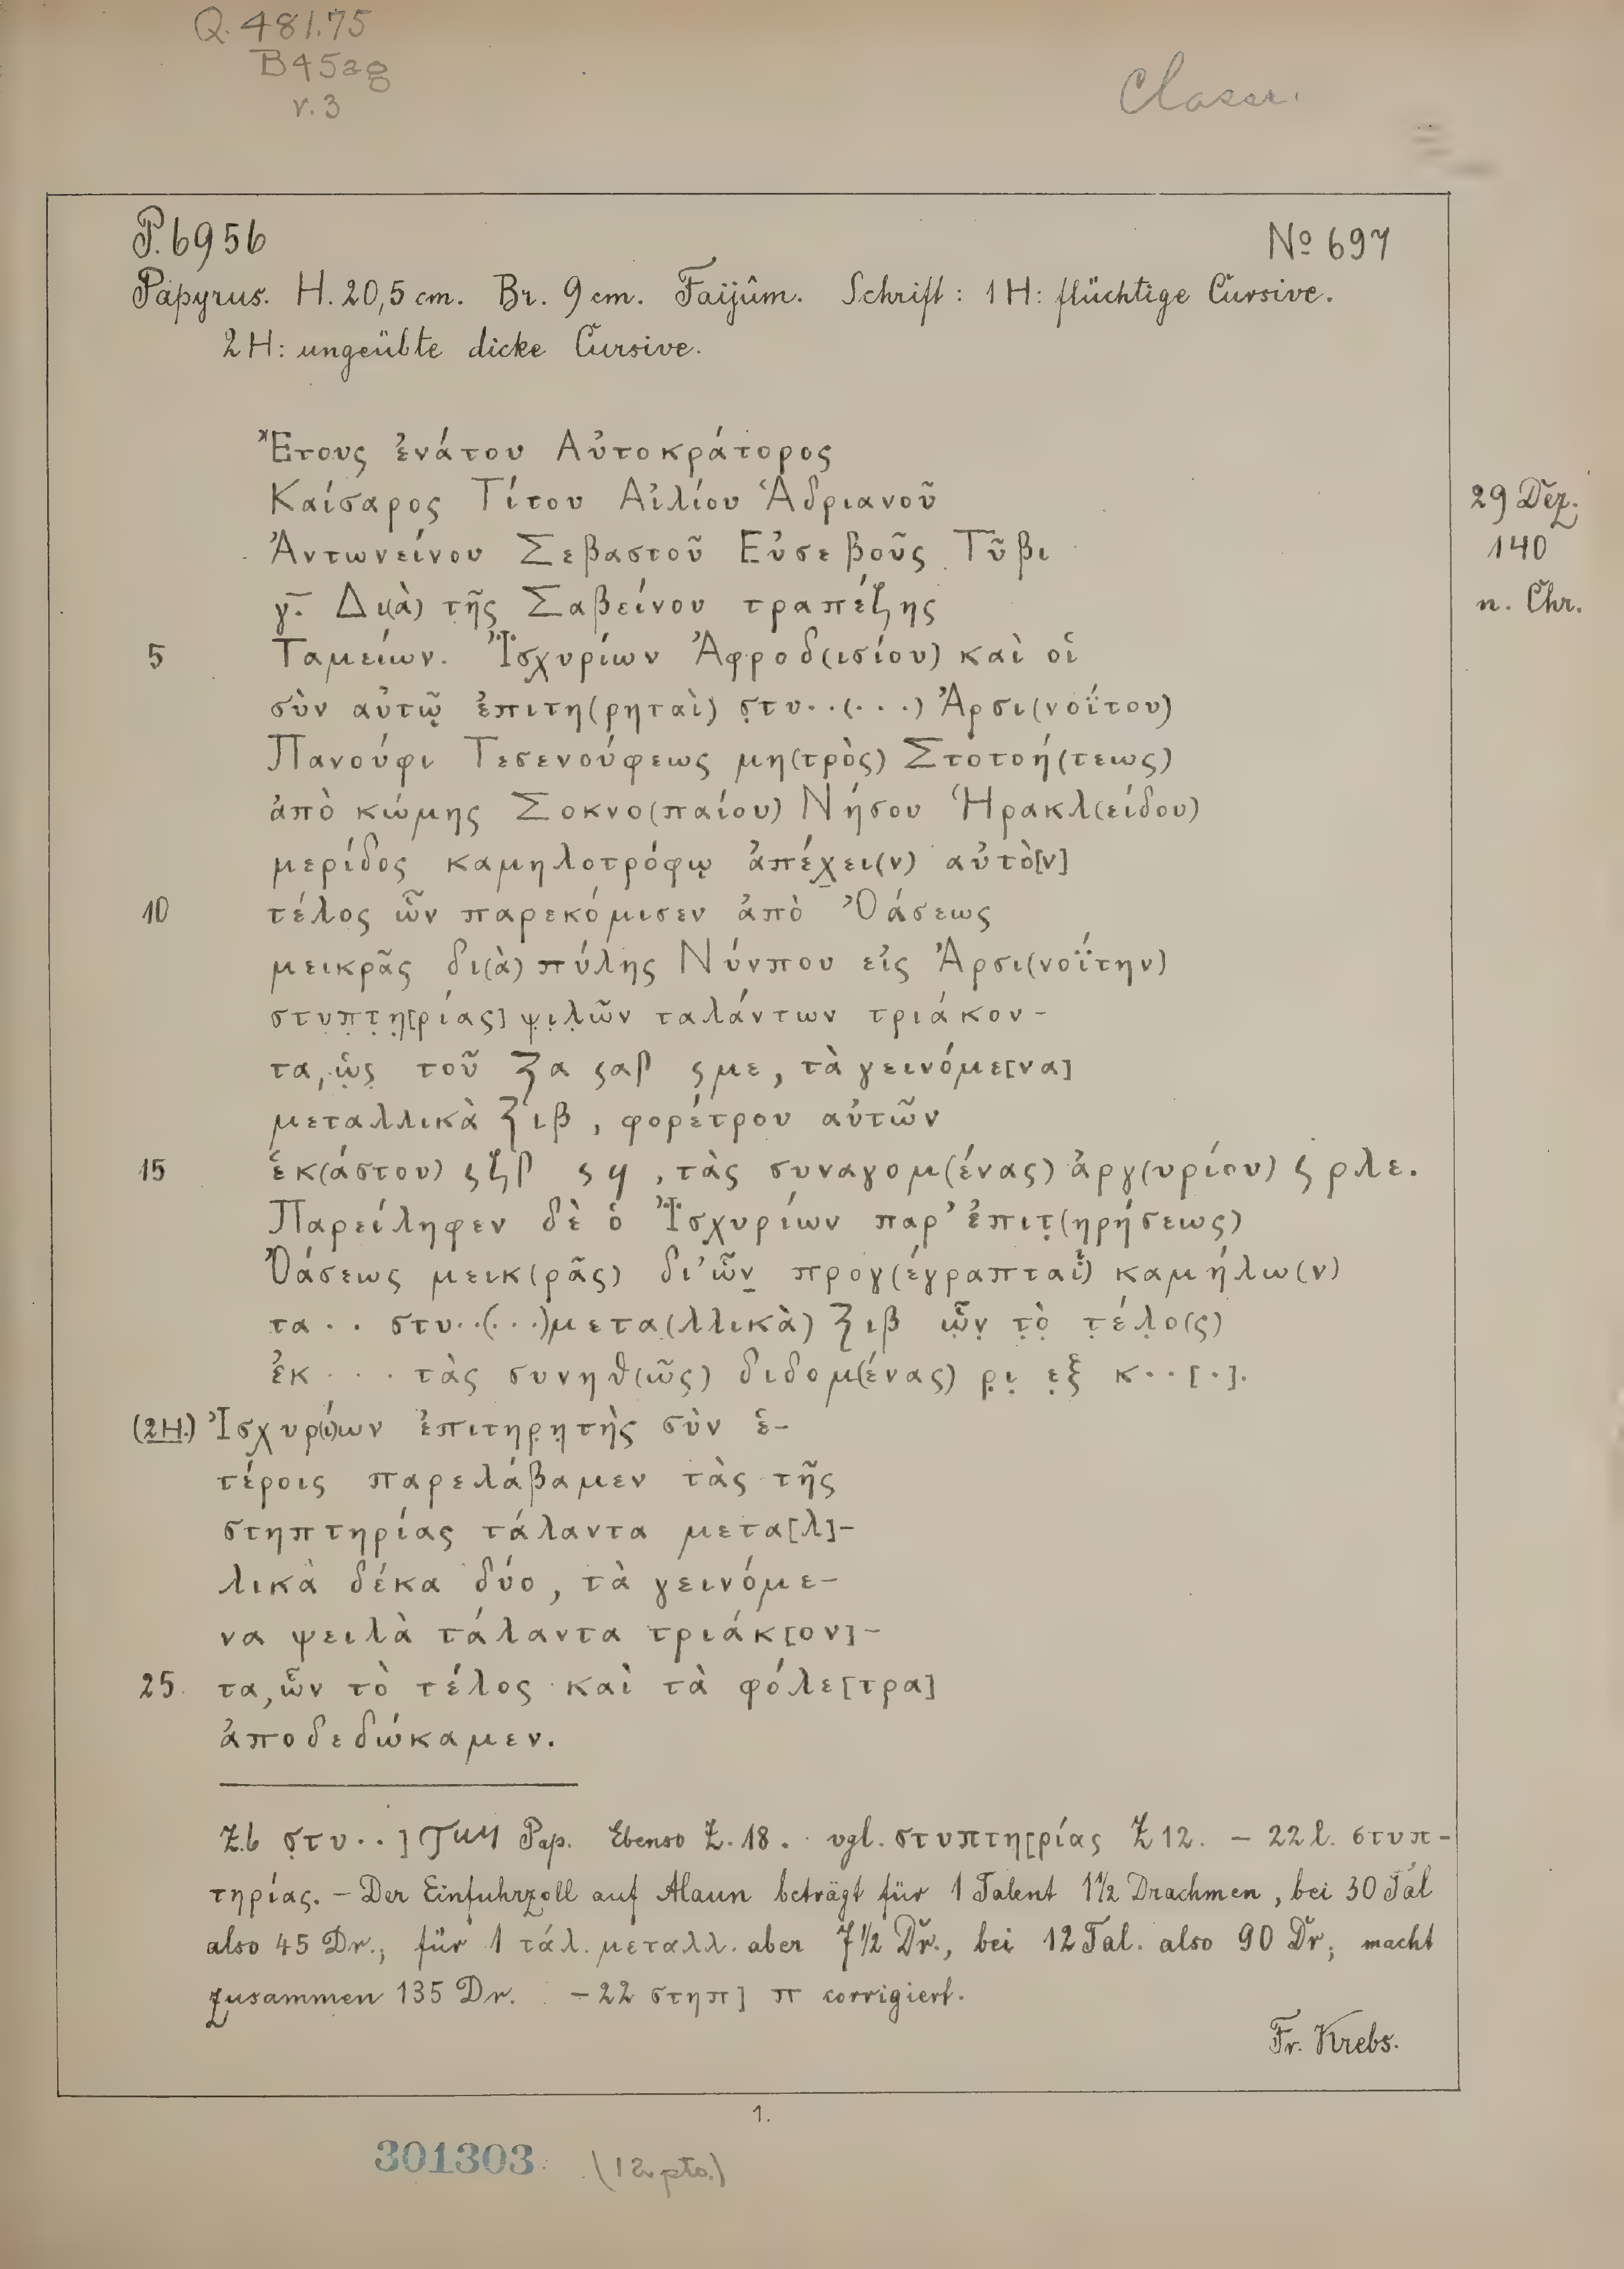 Q. 481.75
B45ag
v. 3
Classr.
P. 6956
Nº 697
Papyrus. H. 20,5 cm. Br. 9 cm. Faijûm. Schrift: 1H: flüchtige Cursive.
2H: ungeübte dicke Cursive.
Ἔτους ἐνάτου Αὐτοκράτορος
Καίσαρος Τίτου Αἰλίου Ἁδριανοῦ
29 Dez.
Ἀντωνείνου Σεβαστοῦ Εὐσεβοῦς Τῦβι
140
γ̄. Δι(ὰ) τῆς Σαβείνου τραπέζης
n. Chr.
5 Ταμείων. Ἰσχυρίων Ἀφροδ(ισίου) καὶ οἱ
σὺν αὐτῷ ἐπιτη(ρηταὶ) σ̣τυ..(...) Ἀρσι(νοΐτου)
Πανούφι Τεσενούφεως μη(τρὸς) Στοτοή(τεως)
ἀπὸ κώμης Σοκνο(παίου) Νήσου Ἡρακλ(είδου)
μερίδος καμηλοτρόφῳ ἀπέχει(ν) αὐτὸ[ν]
10 τέλος ὧν παρεκόμισεν ἀπὸ Ὀάσεως
μεικρᾶς δι(ὰ) πύλης Νύνπου εἰς Ἀρσι(νοΐτην)
στυπ̣τ̣η̣[ρίας] ψ̣ι̣λ̣ῶν ταλάντων τριάκον-
τα, ὡ̣ς̣ τοῦ ϡα ςαβ ςμε, τὰ γεινόμε[να]
μεταλλικὰ ϡιβ, φορέτρου αὐτῶν
15 ἑκ(άστου) ςζβ ςϥ, τὰς συναγομ(ένας) ἀργ(υρίου) ς ρλε.
Παρείληφεν δὲ ὁ Ἰσχυρίων παρ' ἐπιτ̣(ηρήσεως)
Ὀάσεως μεικ(ρᾶς) δι' ὧν προγ(έγραπται) καμήλω(ν)
τα.. στυ..(...)μετα(λλικὰ) ϡιβ ὧ̣ν̣ τ̣ὸ̣ τ̣έλ̣ο(ς)
ἐκ... τὰς συνηθ(ῶς) διδομ(ένας) ρ̣ι̣ ε̣ξ κ..[.].
(2H.) Ἰσχυρ(ί)ων ἐπιτηρ̣η̣τὴς σὺν ἑ-
τέροις παρελάβαμεν τὰς τῆς
στηπτηρίας τάλαντα μετα[λ]-
λικὰ δέκα δύο, τὰ γεινόμε-
να ψειλὰ τάλαντα τριάκ[ον]-
25 τα, ὧν τὸ τέλος καὶ τὰ φόλε[τρα]
ἀποδεδώκαμεν.
Z.6 σ̣τυ..] Pap. Ebenso Z. 18. vgl. στυπτη[ρίας Z 12. – 22 l. στυπ-
τηρίας. – Der Einfuhrzoll auf Alaun beträgt für 1 Talent 1½ Drachmen, bei 30 Tal
also 45 Dr.; für 1 τάλ. μεταλλ. aber 7½ Dr., bei 12 Tal. also 90 Dr; macht
zusammen 135 Dr. – 22 στηπ] π corrigiert.
Fr. Krebs.
1.
301303
(12 pts.)